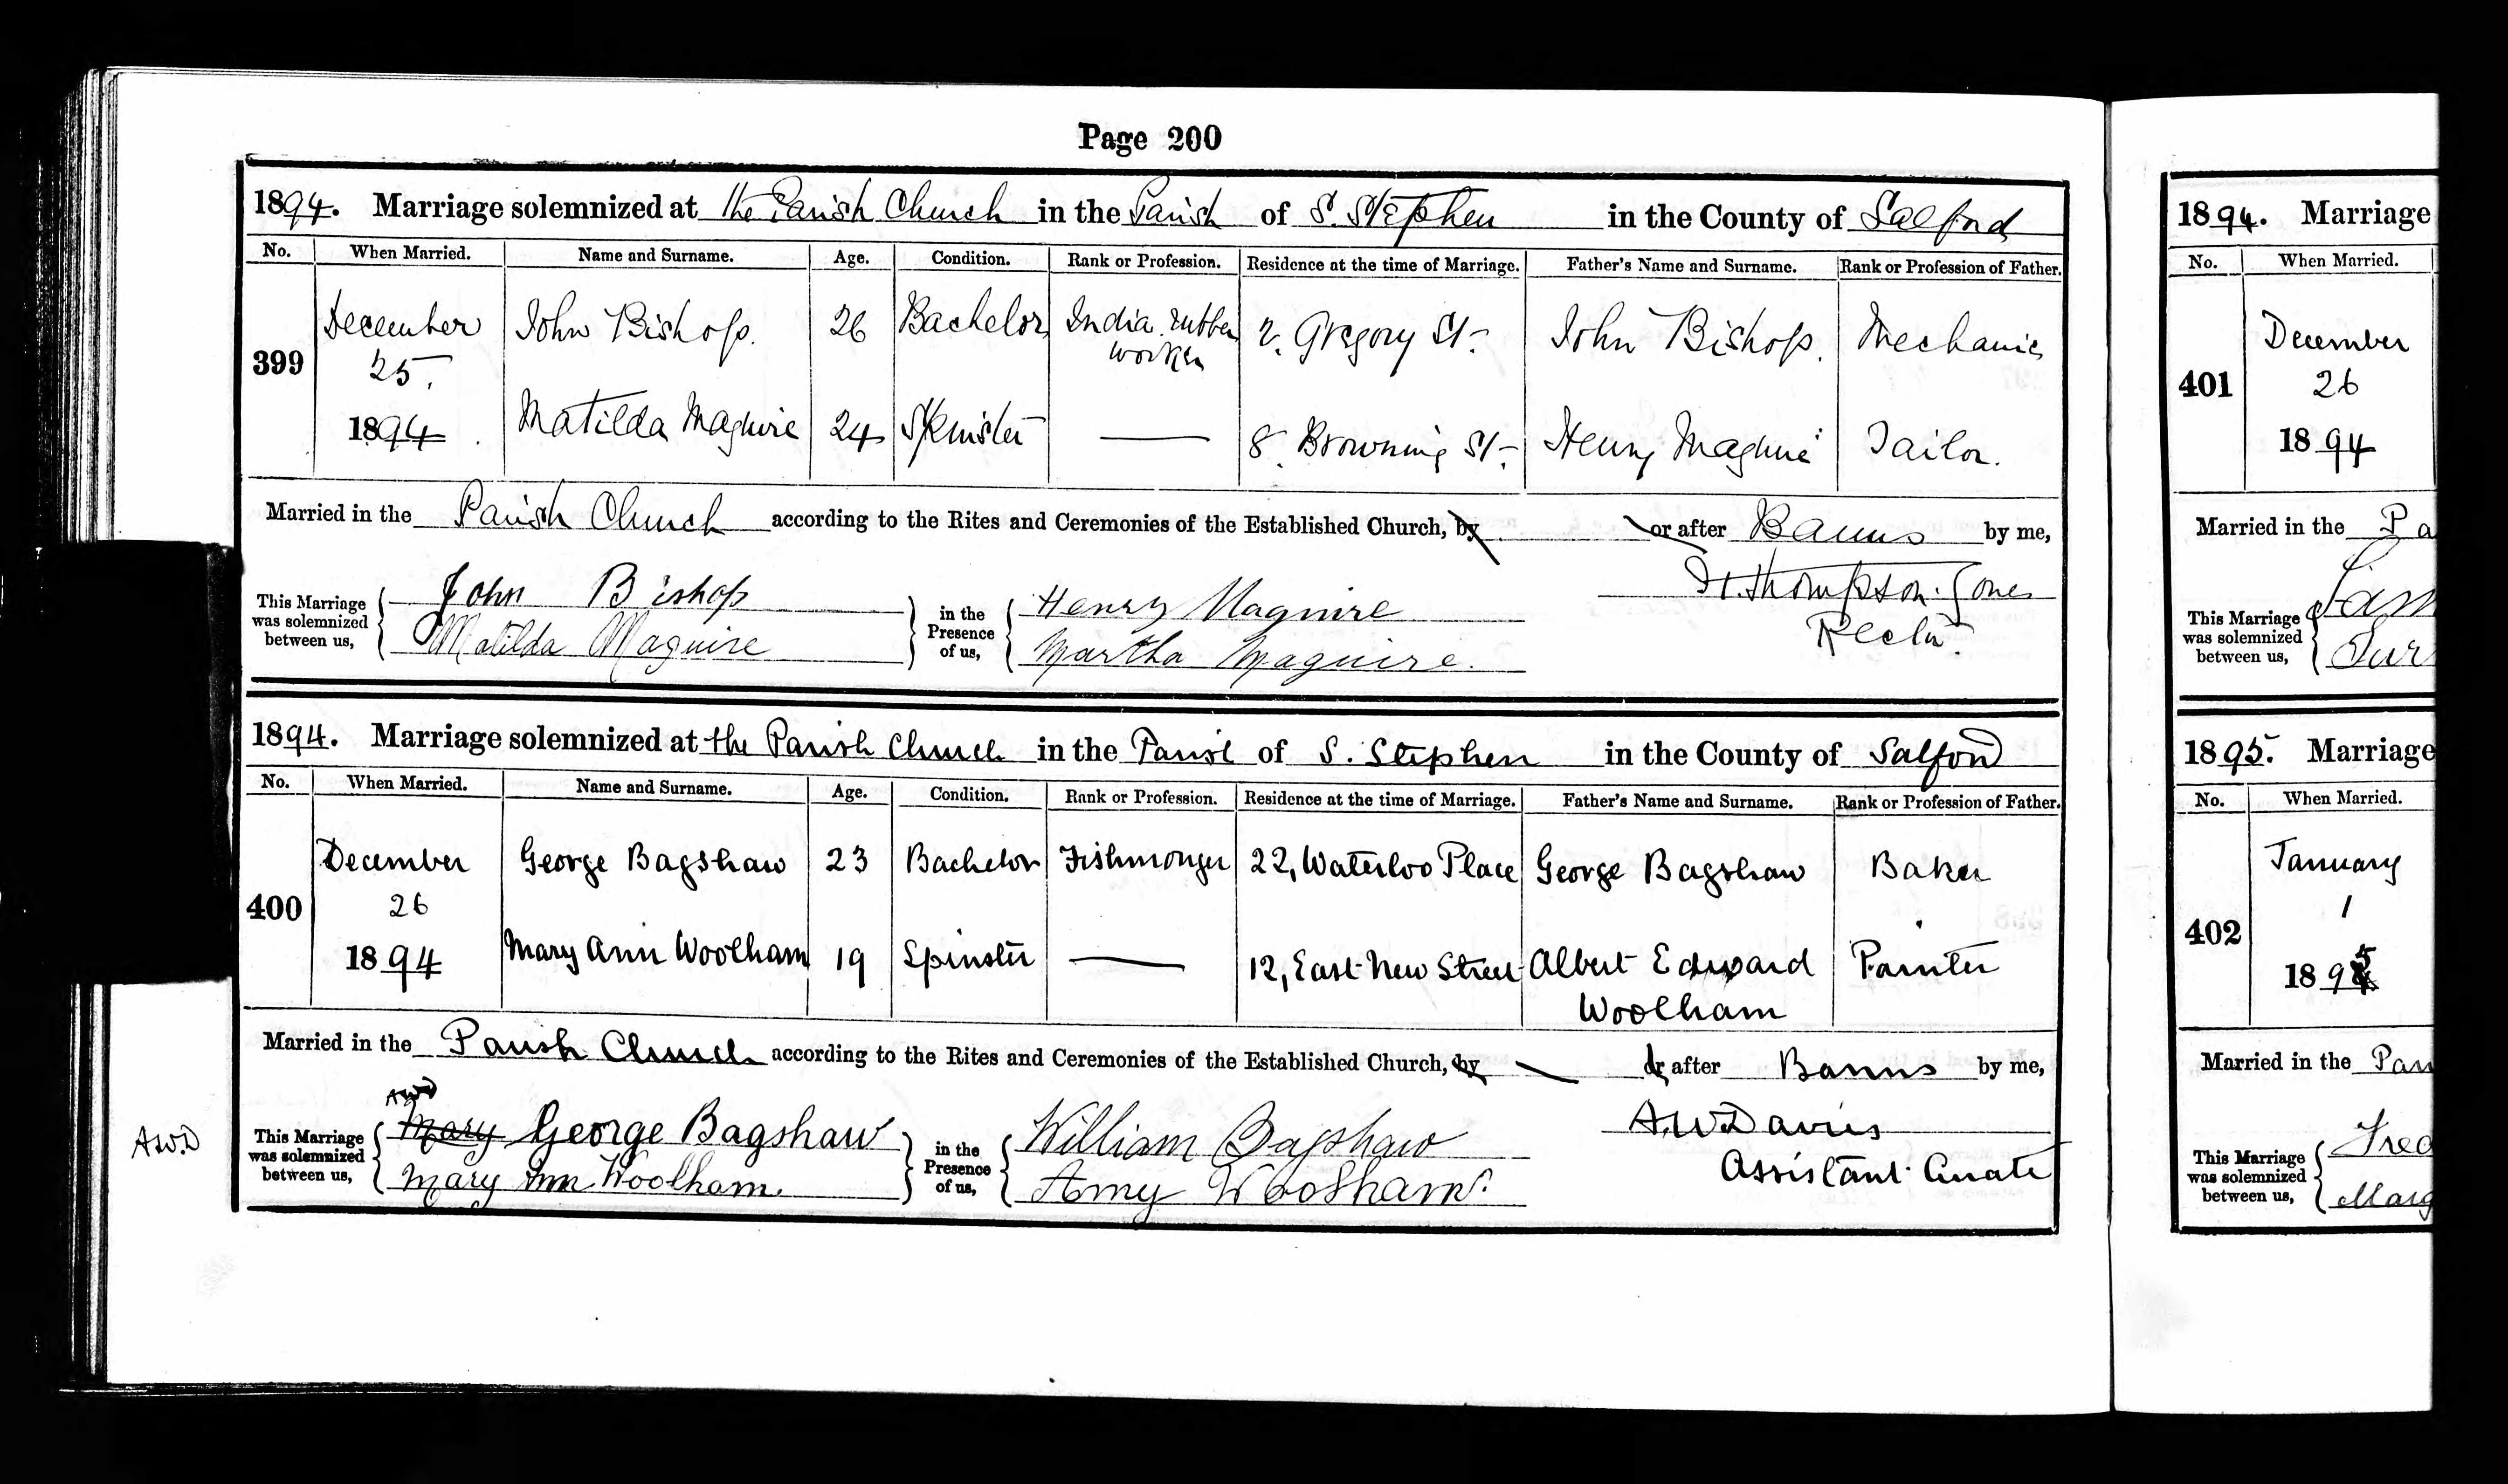 Page 200
1894. Marriage solemnized at the Parish Church in the Parish of S. Stephen in the County of Salford
No. When Married. Name and Surname. Age. Condition. Rank or Profession. Residence at the time of Marriage. Father's Name and Surname. Rank or Profession of Father.
399 December 25. 1894
John Bishop. 26 Bachelor India rubber worker 2. Gregory St. John Bishop. Mechanic
Matilda Maguire 24 Spinster — 8. Browning St. Henry Maguire Tailor.
Married in the Parish Church according to the Rites and Ceremonies of the Established Church, by or after Banns by me,
This Marriage was solemnized between us, John Bishop Matilda Maguire in the Presence of us, Henry Maguire Martha Maguire.
H. Thompson. Jones
Rector.
1894. Marriage solemnized at the Parish Church in the Parish of S. Stephen in the County of Salford
No. When Married. Name and Surname. Age. Condition. Rank or Profession. Residence at the time of Marriage. Father's Name and Surname. Rank or Profession of Father.
400 December 26 1894
George Bagshaw 23 Bachelor Fishmonger 22, Waterloo Place George Bagshaw Baker
Mary Ann Woolham 19 Spinster — 12, East New Street Albert Edward Woolham Painter
Married in the Parish Church according to the Rites and Ceremonies of the Established Church, by or after Banns by me,
AWD
A.W.D
This Marriage was solemnized between us, Mary George Bagshaw Mary Ann Woolham. in the Presence of us, William Bagshaw Amy Woolham.
A.W. Davies
Assistant Curate
1894. Marriage
No. When Married.
401 December 26 1894
Married in the Pa
This Marriage was solemnized between us,
1895. Marriage
No. When Married.
402 January 1 1895
Married in the Par
This Marriage was solemnized between us, Fred
Marg